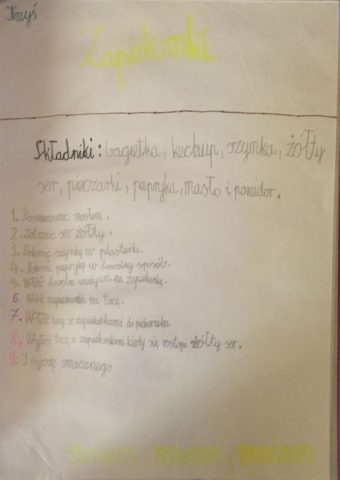 Krzyś
Zapiekanki
Składniki: bagietka, keckup, szynka, żółty
ser, pieczarki, papryka, masło i pomidor.
1. Posmarować masłem.
2. Zetrzeć ser żółty.
3. Pokroić szynkę w plasterki.
4. Pokroić paprykę w dowolny sposób.
5. Włóż dowolne na zapiekankę.
6. Włóż zapiekanki na tacę.
7. Włóż tacę z zapiekankami do piekarnika.
8. Wyjąć tacę z zapiekankami kiedy się roztopi żółty ser.
9. I życzę smacznego
mniam, mniam, mniam